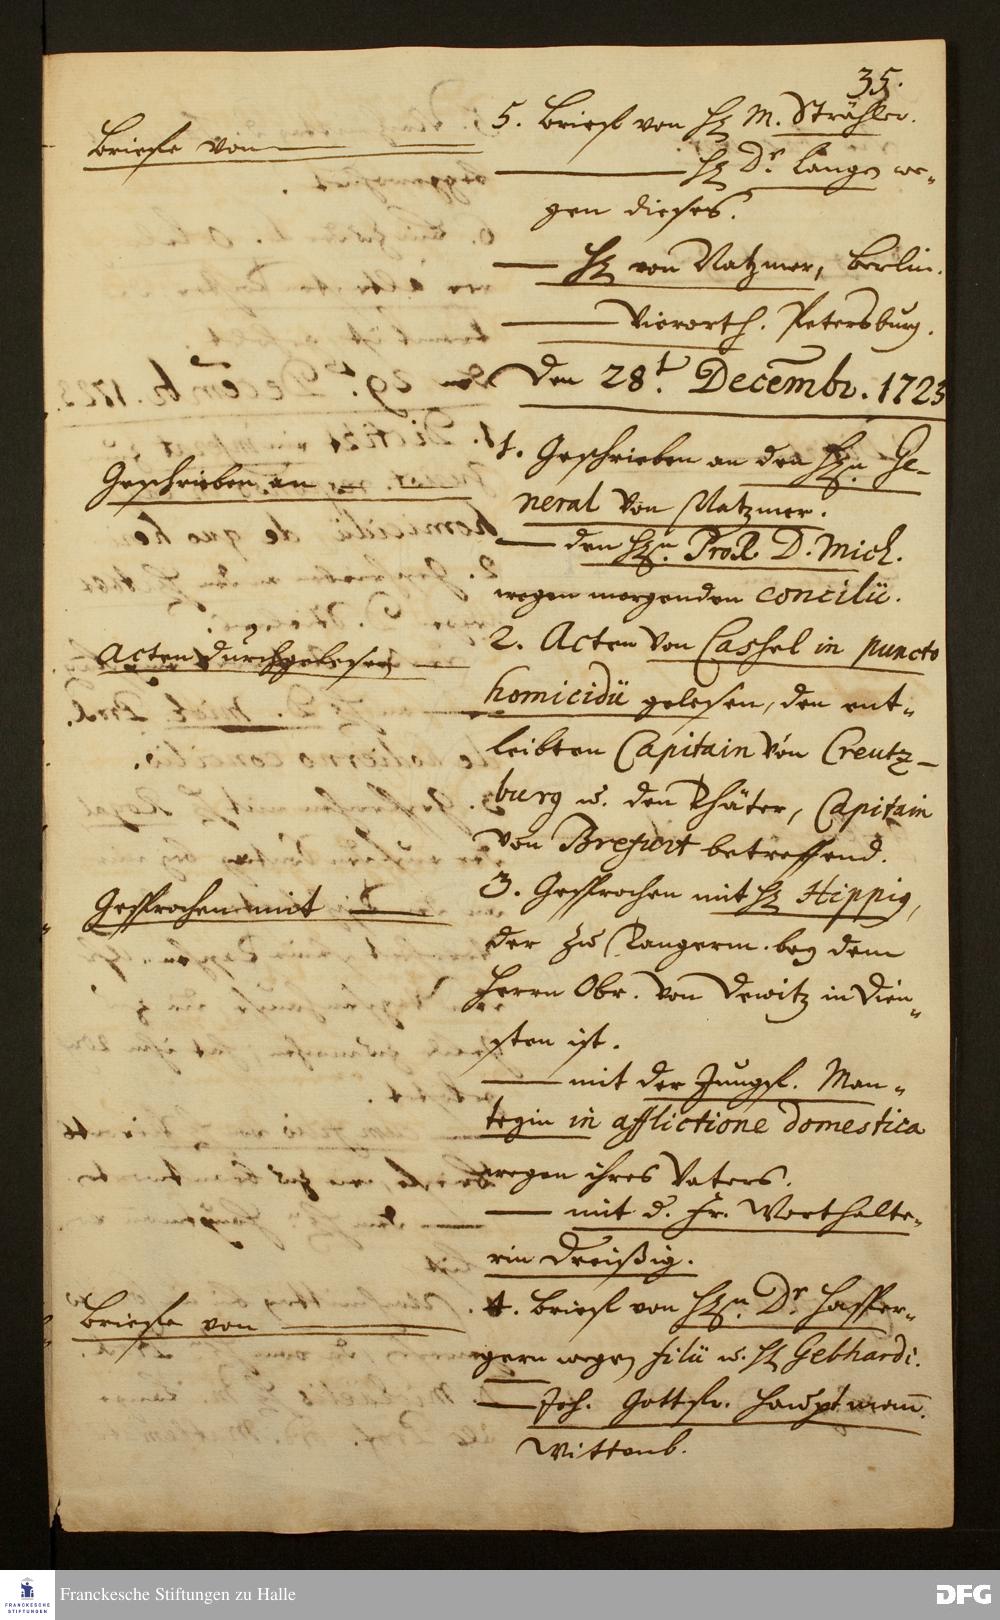 35.
Briefe von
5. Brief von H. M. Strähler.
H. Dr. Langen we-
gen dieses.
H. von Natzmer, Berlin.
Vierorth. Petersburg.
Den 28t. Decembr. 1723
Geschrieben an
1. Geschrieben an den Hn. Ge-
neral von Natzmer.
den Hn. ProR. D. Mich.
wegen morgenden concilii.
Acten durchgelesen
2. Acten von Cassel in puncto
homicidii gelesen, den ent-
leibten Capitain von Creutz-
burg u. den Thäter, Capitain
von betreffend.
Gesprochen mit
3. Gesprochen mit H. Hippig,
der zu Tangerm. bey dem
Herrn Obr. von Dewitz in Dien-
sten ist.
mit der Jungf. Man-
tegin in afflictione domestica
wegen ihres Vaters.
mit d. Fr. Worthalte-
rin Dreißig.
Briefe von
4. Brief von Hn. Dr. Haffer-
gern wegen filii u. H. Gebhardi.
Joh. Gottfr. Hauptmann.
Wittenb.
FRANCKESCHE
STIFTUNGEN
Franckesche Stiftungen zu Halle
DFG